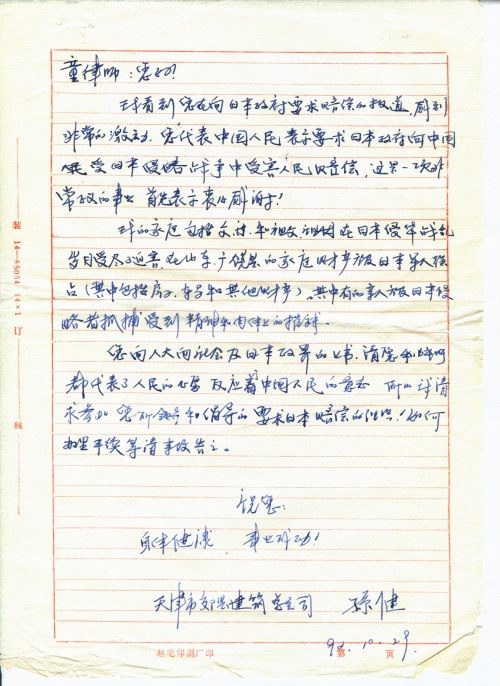 童律师：您好！
我看到您在向日本政府要求赔偿的报道，感到
非常的激动，您代表中国人民表示要求日本政府向中国
受日本侵略战争中受害人民的赔偿，这是一项非
常正义的事业 首先表示衷心感谢！
我的家庭包括父亲和祖父 在日本侵华战乱
岁月受尽了迫害，在山东广饶县的家庭财产被日本军人强
占（其中包括房子、车马和其他财产），其中有的家人被日本侵
略者抓捕受到精神和肉体上的摧残。
您向人大向社会及日本政界的上书、请愿和
都代表了人民的心愿 反应着中国人民的 所以我请
求参加您所领导和倡导的要求日本赔偿的组织！如何
办理手续等请来函告之。
祝您：
身体健康， 事业成功！
天津市 建筑总公司 孙健
92.10.29
装 14—85054 14×1 订 线
赵宅印刷厂印 第 页